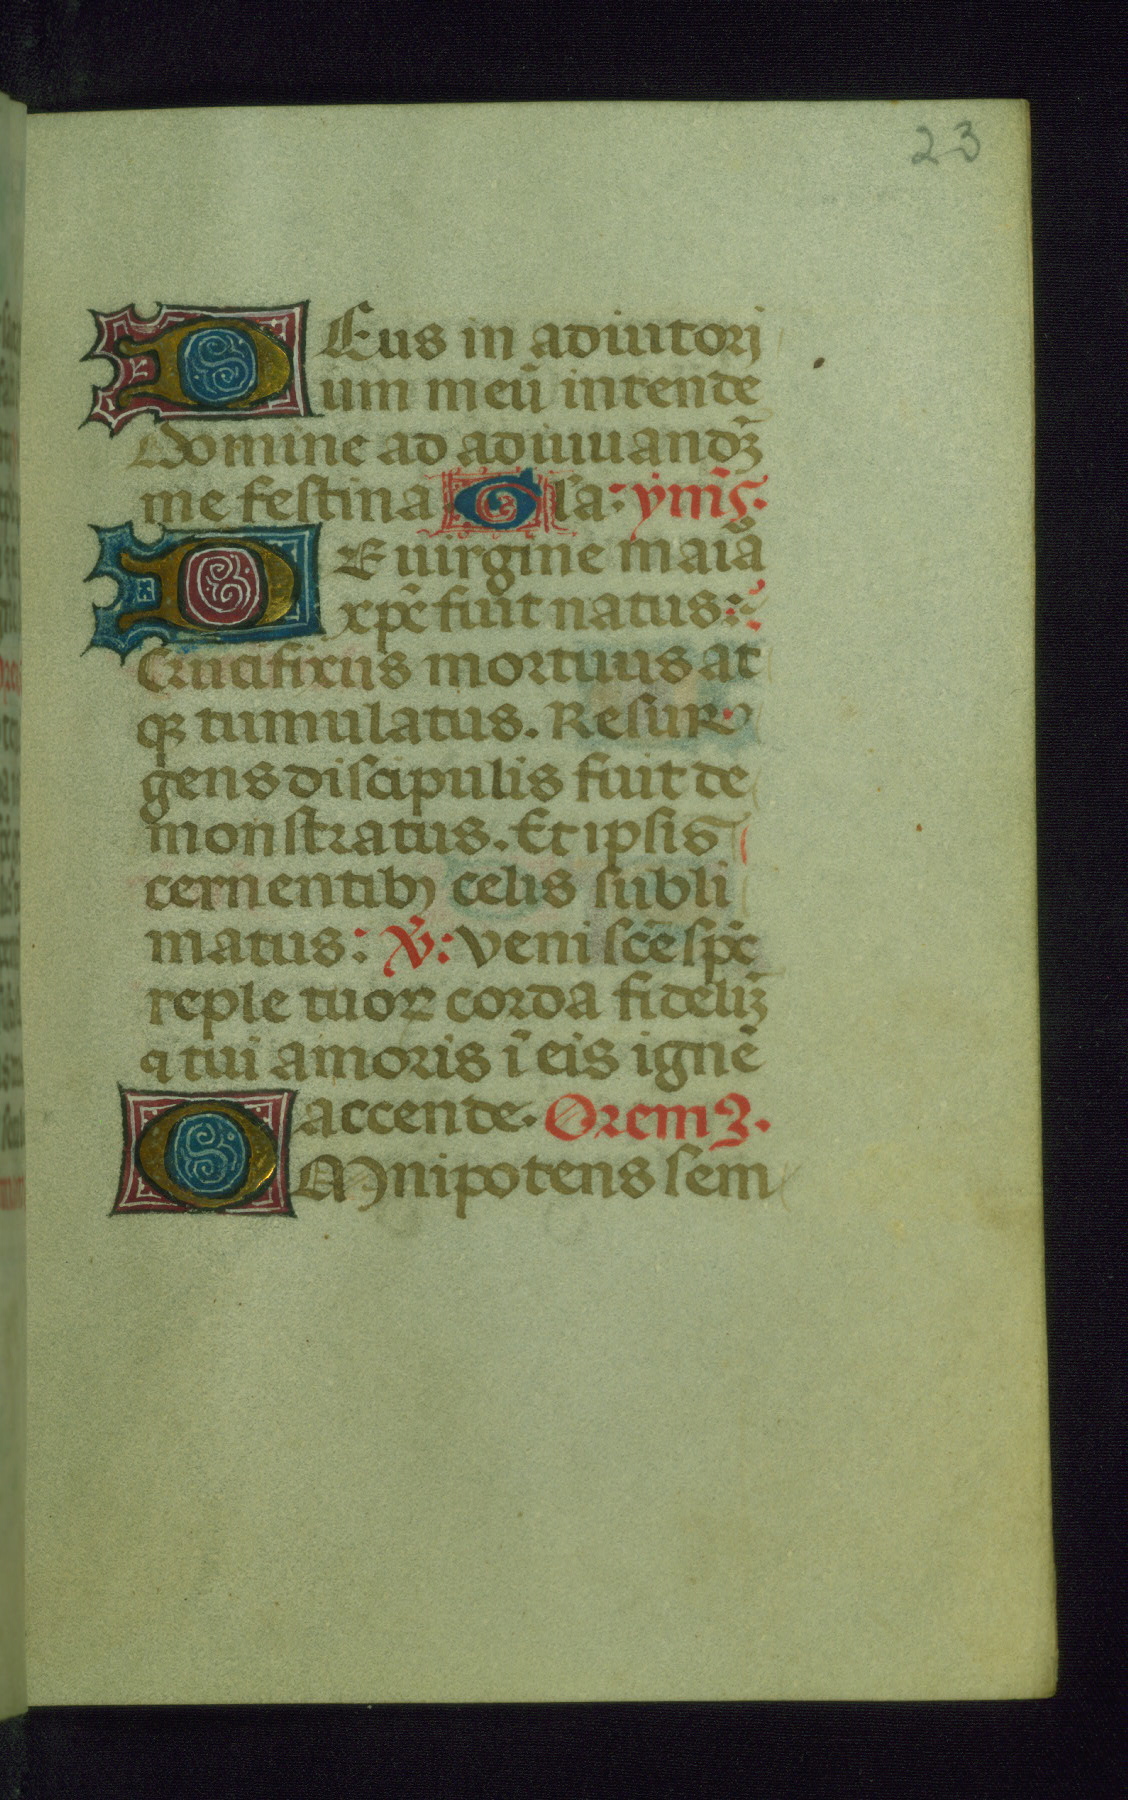 23
DEus in adiutori
um meū intende
Domine ad adiuuandꝫ
me festina Gl'a: ymꝰs.
DE uirgine maiā
xp̄c fuit natus:
Crucifixus mortuus at
qꝫ tumulatus. Resur
gens discipulis fuit de
monstratus. Et ipsis
cernentibꝰ celis subli
matus: V̄: Veni scē sp̄c
reple tuoꝝ corda fideliꝫ
q tui amoris ī eis ignē
accende. Oremꝫ.
OMnipotens sem